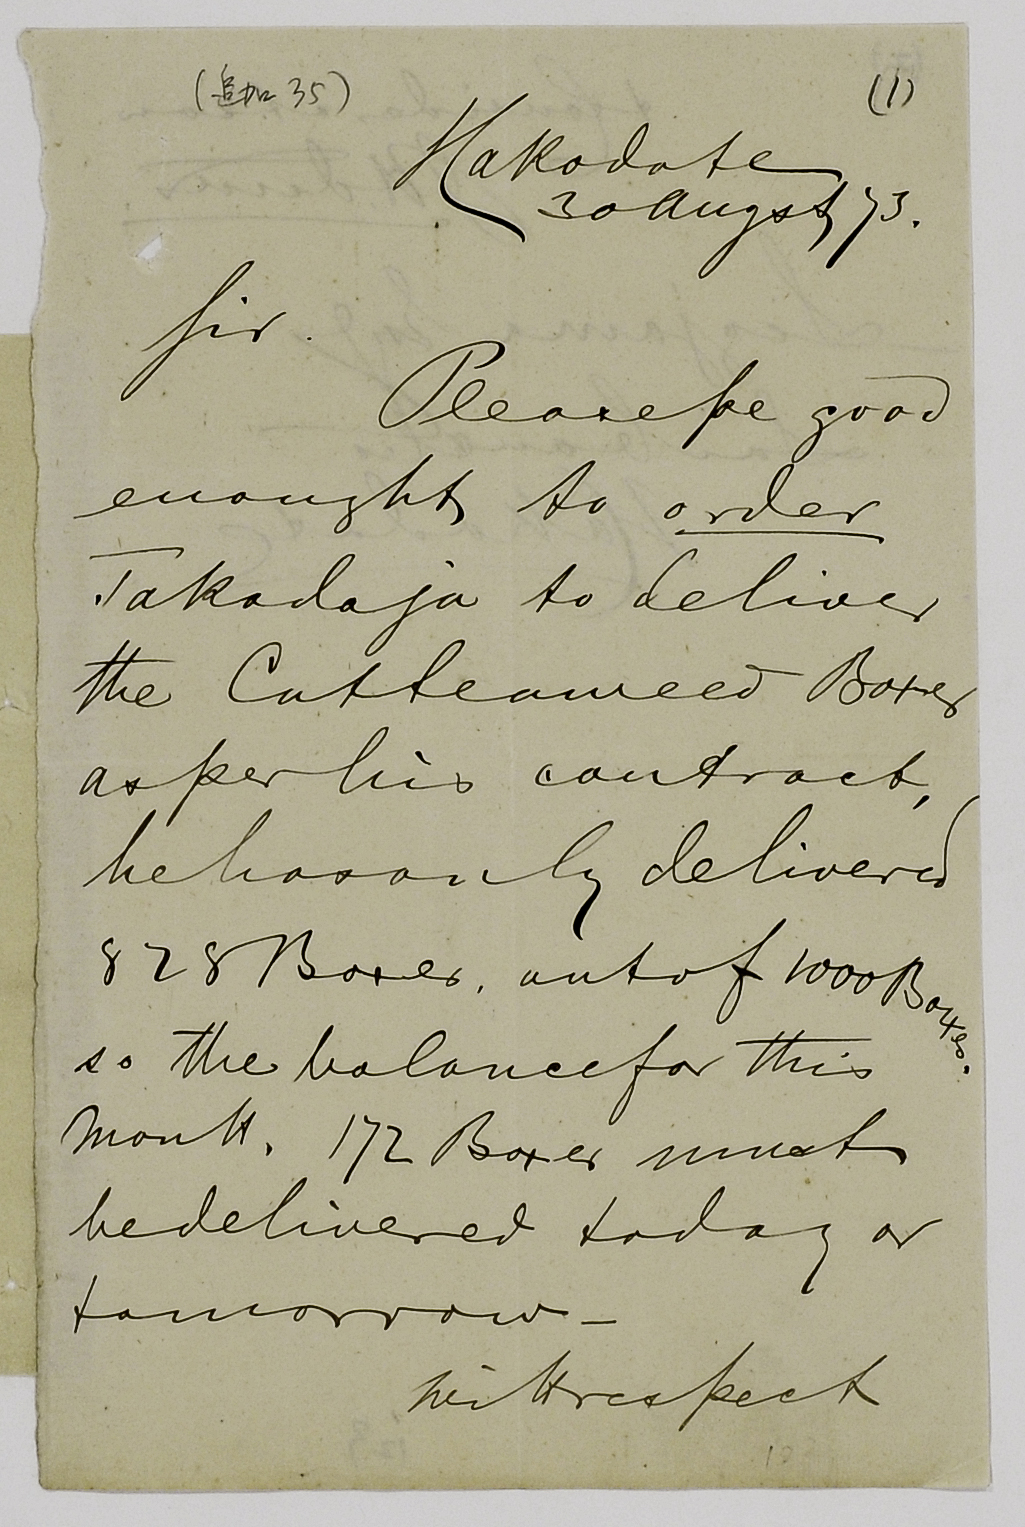 (追加 35)
(1)
Hakodate
30 Augst, 73.
Sir.
Please be good
enought to order
Takadaja to deliver
the Cutteaweed Boxes
as per his contract,
he has only delivered
828 Boxes, out of 1000 Boxes.
so the balance for this
Month. 172 Boxes must
be delivered today or
tomorrow –
with respect